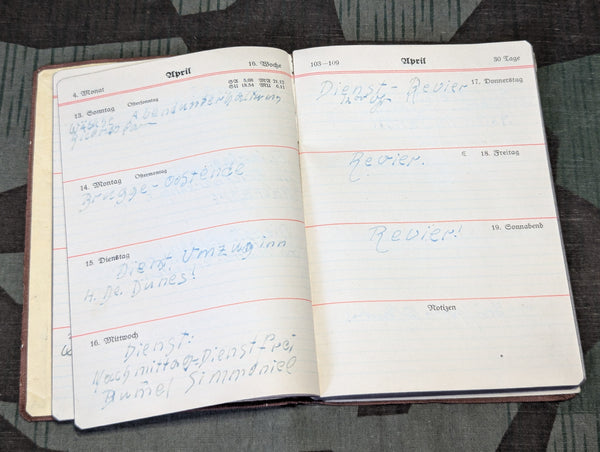 4. Monat April 16. Woche
SA 5.08 MA 21.12
SU 18.54 MU 6.11
13. Sonntag Ostersonntag
Abendunterhaltung
14. Montag Ostermontag
Brügge-Oostende
15. Dienstag
Dienst Umzug inn
H. De. Dunes!
16. Mittwoch
Dienst:
Nachmittag-Dienstfrei
Bumel Simmoniel
103—109 April 30 Tage
17. Donnerstag
Dienst - Revier
18. Freitag
Revier.
19. Sonnabend
Revier!
Notizen